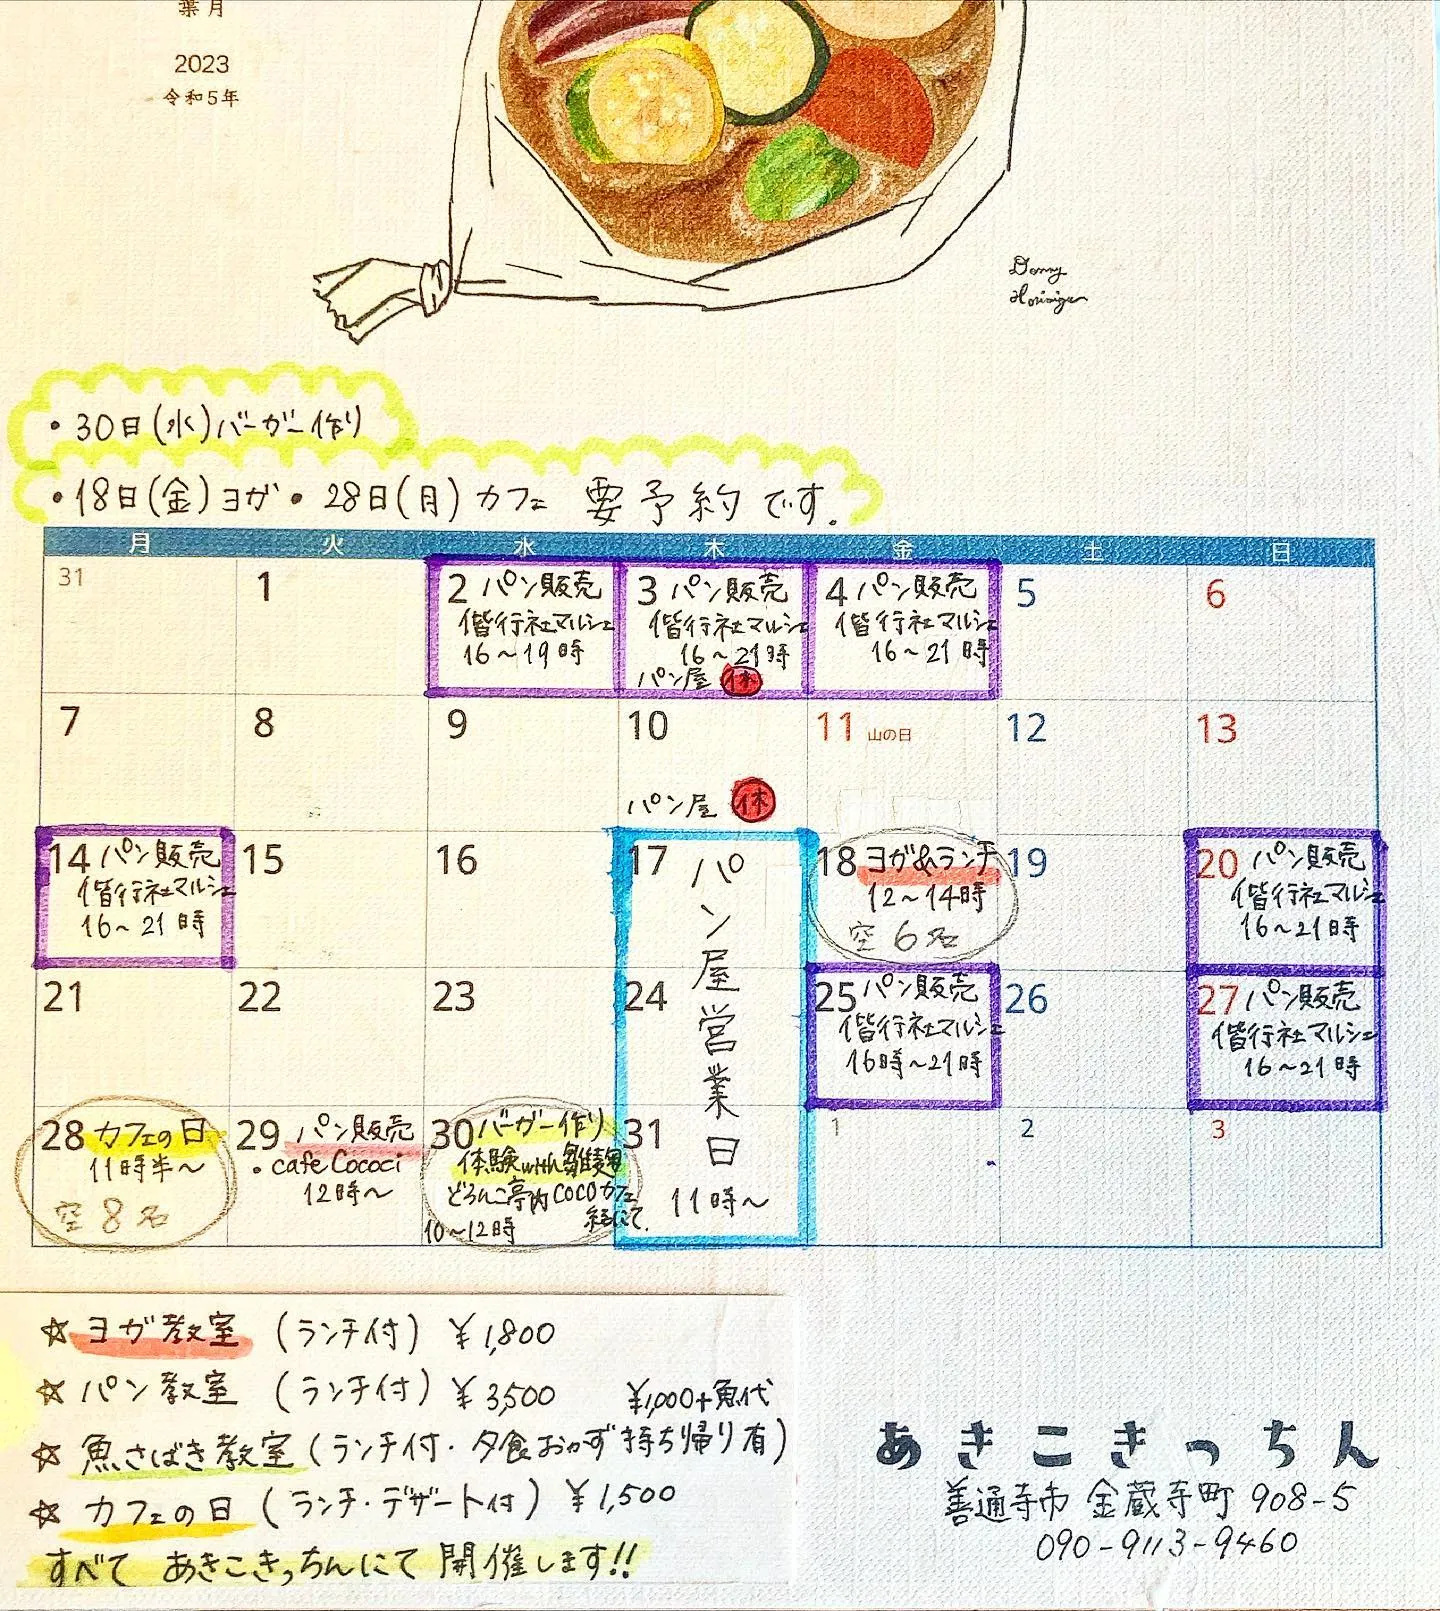 葉月
2023
令和5年
Danny
・30日(水)バーガー作り
・18日(金)ヨガ・28日(月)カフェ 要予約です。
月 火 水 木 金 土 日
31
1
2 パン販売
偕行社マルシェ
16~19時
3 パン販売
偕行社マルシェ
16~21時
パン屋 休
4 パン販売
偕行社マルシェ
16~21時
5
6
7
8
9
10
パン屋 休
11 山の日
12
13
14 パン販売
偕行社マルシェ
16~21時
15
16
17
パン屋営業日
11時~
18 ヨガ&ランチ
12~14時
空6名
19
20 パン販売
偕行社マルシェ
16~21時
21
22
23
24
25 パン販売
偕行社マルシェ
16時~21時
26
27 パン販売
偕行社マルシェ
16~21時
28 カフェの日
11時半~
空8名
29 パン販売
・cafe Cococi
12時~
30 バーガー作り
体験with雛麹
どろんこ亭内COCOカフェ
にて
10~12時
31
1
2
3
☆ヨガ教室 (ランチ付) ¥1,800
☆パン教室 (ランチ付) ¥3,500
¥1,000+魚代
☆魚さばき教室(ランチ付・夕食おかず持ち帰り有)
☆カフェの日(ランチ・デザート付) ¥1,500
すべて あきこきっちんにて開催します!!
あきこきっちん
善通寺市 金蔵寺町 908-5
090-9113-9460